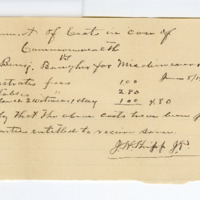 ment of Costs in case of
Commonwealth
vs
Benj. Baugher for Misdemeanor
June 8/1
strates fees 1.00
stables " 2.80
2 witnesses 1 day 1.00 4.80
fy that the above costs have been
entitled to receive same.
J. H. Shipp J.P.